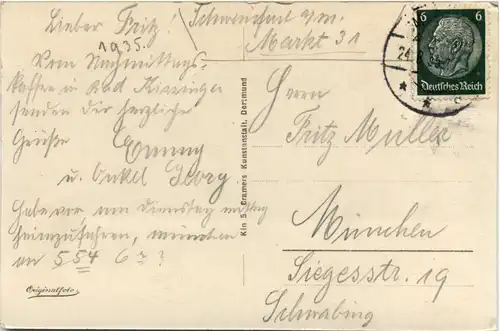 Lieber Fritz!
1935.
Vom Nachmittags-
kaffee in Bad Kissingen
senden dir herzliche
Grüße Emmy
u. Onkel Georg
Habe vor, am Dienstag mittag
heimzufahren, München
an 554
Originalfoto
Kin 5 Cramers Kunstanstalt, Dortmund
Schweinfurt a/m.
Markt 31
6 6
Deutsches Reich
24.
Herrn
Fritz Müller
München
Siegesstr. 19
Schwabing